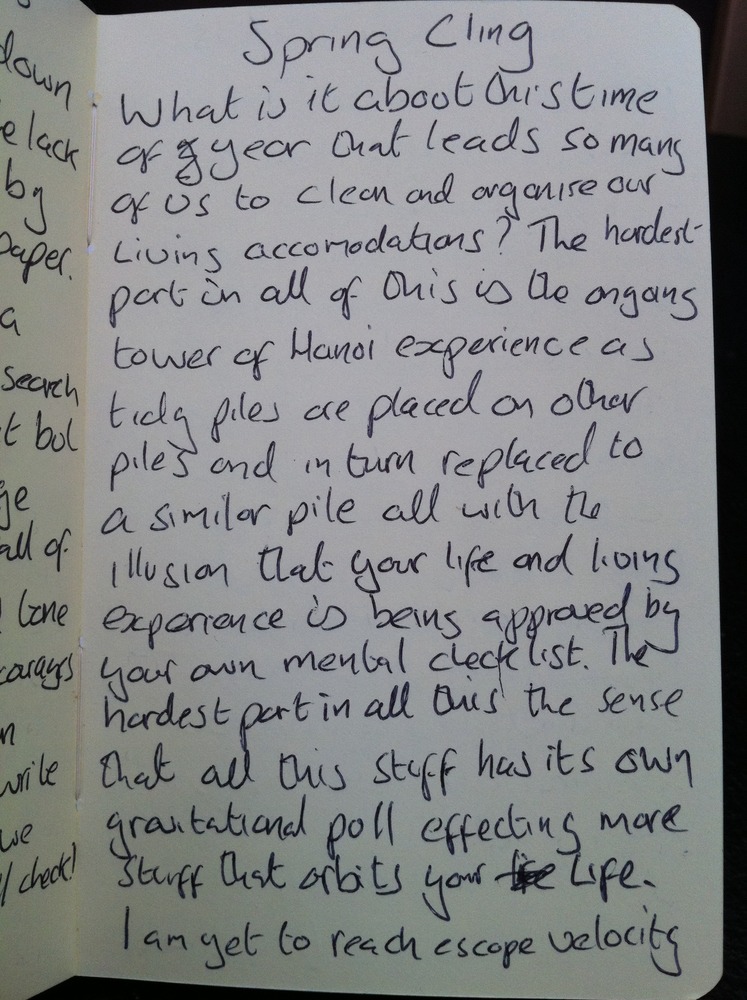 Spring Cling
What is it about this time
of year that leads so many
of us to clean and organise our
Living accomodations? The hardest
part in all of this is the ongoing
tower of Hanoi experience as
tidy piles are placed on other
piles and in turn replaced to
a similar pile all with the
illusion that your life and living
experience is being approved by
your own mental checklist. The
hardest part in all this the sense
that all this stuff has its own
gravitational poll effecting more
stuff that orbits your Life.
I am yet to reach escape velocity
down
lack
by
paper.
a
search
bol
all of
write
we
check!